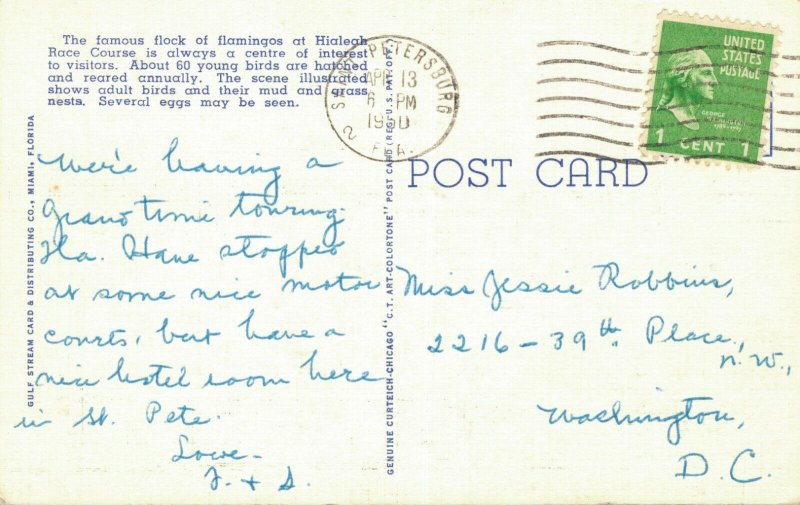 The famous flock of flamingos at Hialeah
Race Course is always a centre of interest
to visitors. About 60 young birds are hatched
and reared annually. The scene illustrated
shows adult birds and their mud and grass
nests. Several eggs may be seen.
SAINT PETERSBURG
APR 13
6 PM
2 FLA.
UNITED
STATES
POSTAGE
GEORGE
WASHINGTON
1 CENT 1
POST CARD
GULF STREAM CARD & DISTRIBUTING CO., MIAMI, FLORIDA
GENUINE CURTEICH-CHICAGO "C.T. ART-COLORTONE" POST CARD (REG. U.S. PAT. OFF.)
We're having a
grand time touring
Fla. Have stopped
at some nice motor
courts, but have a
nice hotel room here
in St. Pete.
Love -
F. & S.
Miss Jessie Robbins,
2216 - 39th Place,
N.W.,
Washington,
D.C.